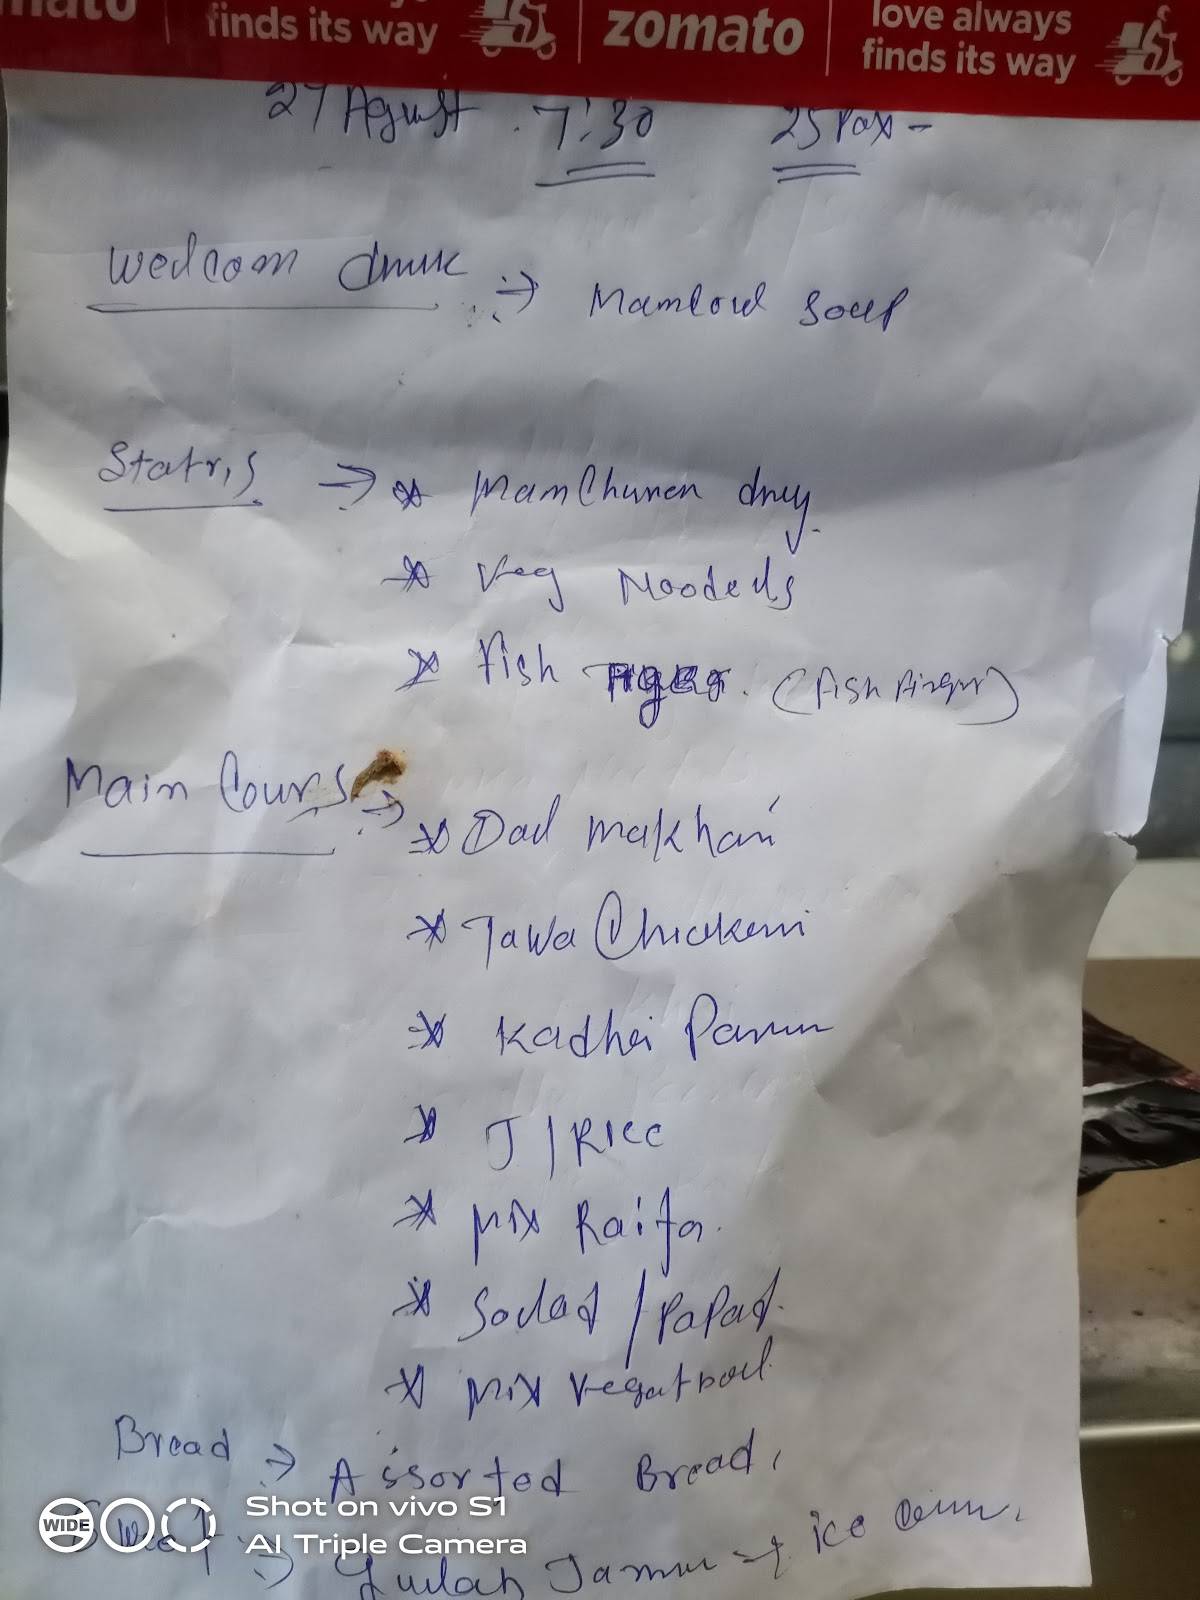 mato finds its way zomato love always finds its way
27 Agust . 7:30 25 Pax -
Wedcom drink → Mamloud Soup
Statris → * Manchuren dry.
* Veg Noodels
* Fish (fish finger)
Main Cours → * Dal makhani
* Tawa Chickeni
* Kadhei Panner
* J/Rice
* Mix Raita.
* Salad / Papad.
* Mix Vegat
Bread → Assorted Bread,
Sweet → Gulab Jamun + ice
WIDE Shot on vivo S1
AI Triple Camera